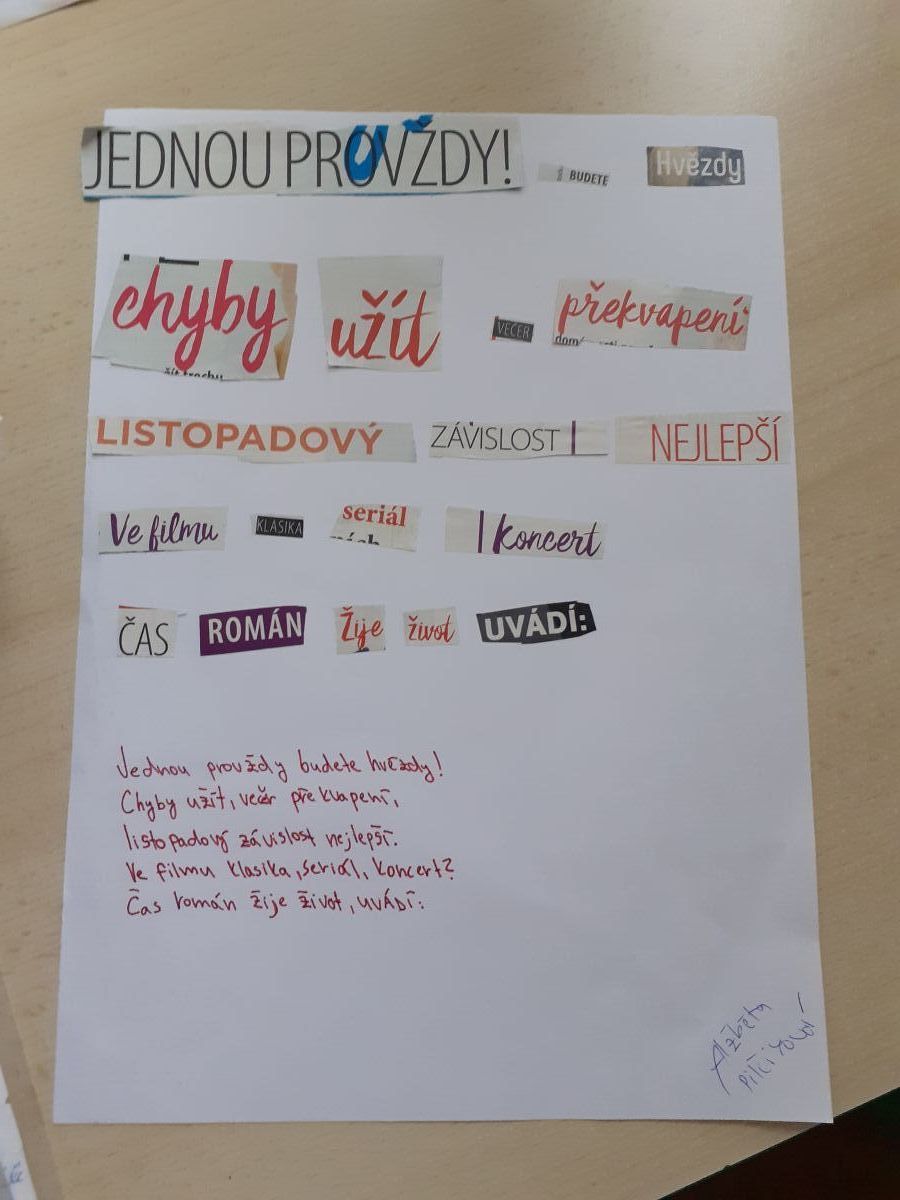 JEDNOU PROVŽDY! BUDETE Hvězdy
chyby užít VEČER překvapení
LISTOPADOVÝ ZÁVISLOST NEJLEPŠÍ
Ve filmu KLASIKA seriál koncert
ČAS ROMÁN Žije život UVÁDÍ:
Jednou provždy budete hvězdy!
Chyby užít, večer překvapení,
listopadový závislost nejlepší.
Ve filmu klasika, seriál, koncert?
Čas román žije život, UVÁDÍ:
Alžběta